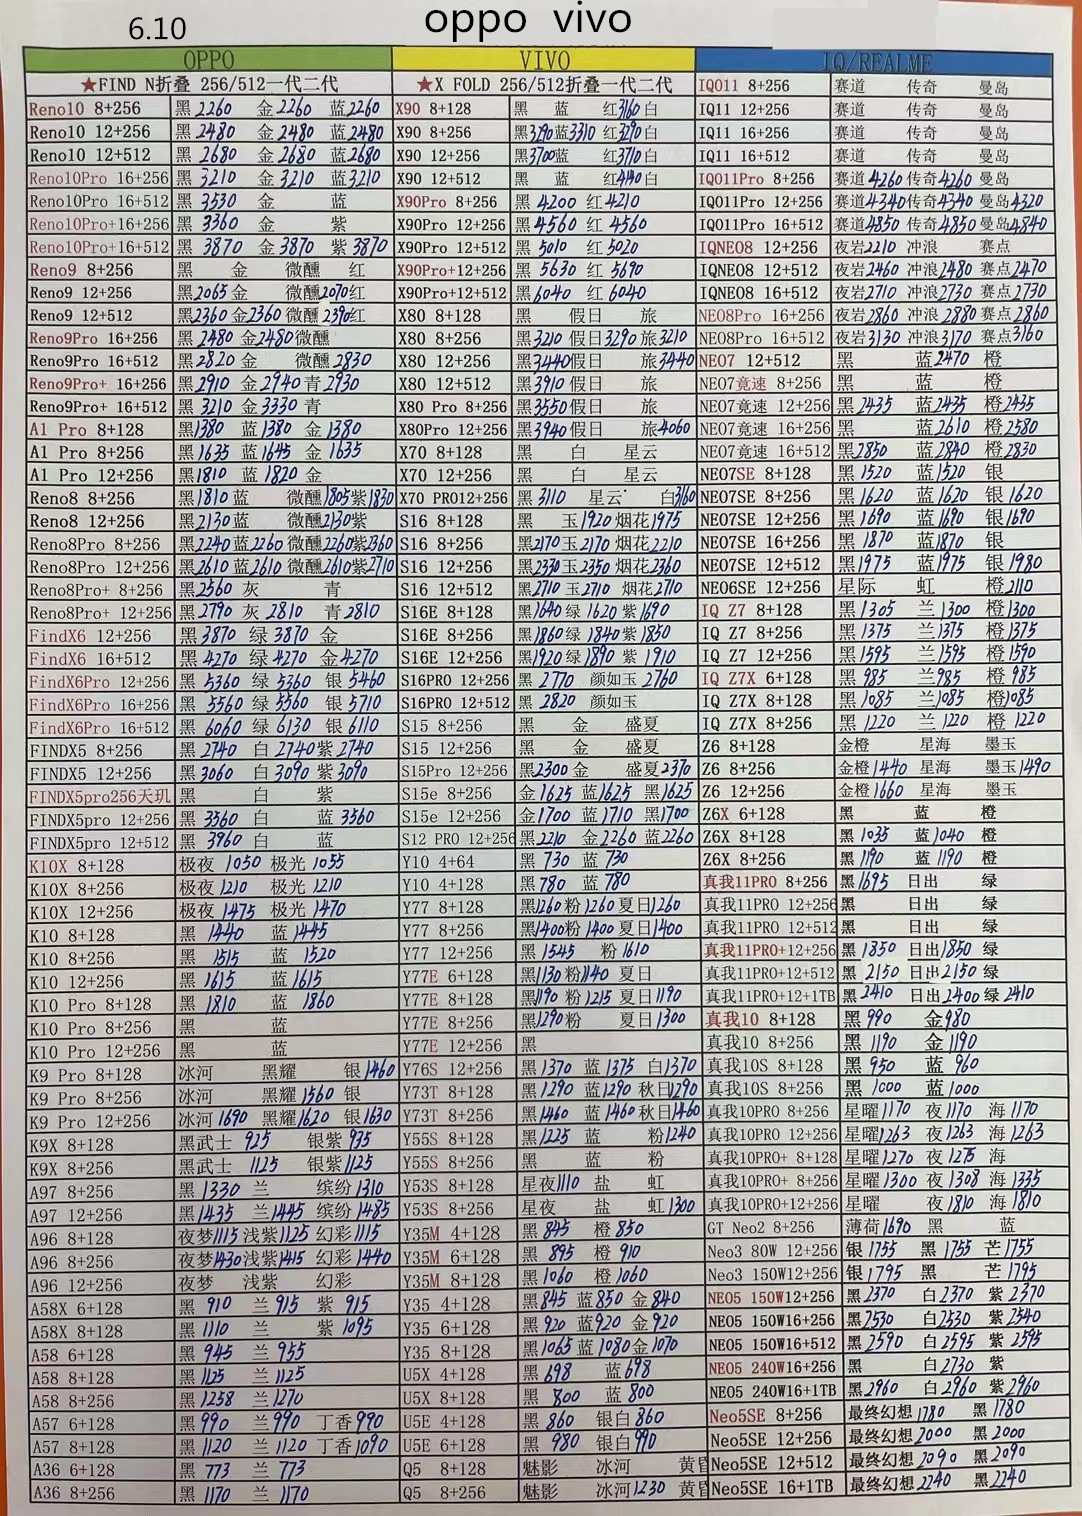 6.10
oppo vivo
OPPO
★FIND N折叠 256/512一代二代
Reno10 8+256 黑2260 金2260 蓝2260
Reno10 12+256 黑2480 金2480 蓝2480
Reno10 12+512 黑2680 金2680 蓝2680
Reno10Pro 16+256 黑3210 金3210 蓝3210
Reno10Pro 16+512 黑3530 金 蓝
Reno10Pro+16+256 黑3360 金 紫
Reno10Pro+16+512 黑3870 金3870 紫3870
Reno9 8+256 黑 金 微醺 红
Reno9 12+256 黑2065 金 微醺2070 红
Reno9 12+512 黑2360 金2360 微醺2390 红
Reno9Pro 16+256 黑2480 金2480 微醺
Reno9Pro 16+512 黑2820 金 微醺2830
Reno9Pro+ 16+256 黑2910 金2940 青2930
Reno9Pro+ 16+512 黑3210 金3330 青
A1 Pro 8+128 黑1380 蓝1380 金1380
A1 Pro 8+256 黑1635 蓝1645 金1635
A1 Pro 12+256 黑1810 蓝1820 金
Reno8 8+256 黑1810 蓝 微醺1805 紫1830
Reno8 12+256 黑2130 蓝 微醺2130 紫
Reno8Pro 8+256 黑2240 蓝2260 微醺2260 紫2360
Reno8Pro 12+256 黑2610 蓝2610 微醺2610 紫2710
Reno8Pro+ 8+256 黑2560 灰 青
Reno8Pro+ 12+256 黑2790 灰2810 青2810
FindX6 12+256 黑3870 绿3870 金
FindX6 16+512 黑4270 绿4270 金4270
FindX6Pro 12+256 黑5360 绿5360 银5460
FindX6Pro 16+256 黑5560 绿5560 银5710
FindX6Pro 16+512 黑6060 绿6130 银6110
FINDX5 8+256 黑2740 白2740 紫2740
FINDX5 12+256 黑3060 白3090 紫3090
FINDX5pro256天玑 黑 白 紫
FINDX5pro 12+256 黑3360 白 蓝3560
FINDX5pro 12+512 黑3960 白 蓝
K10X 8+128 极夜 1050 极光1055
K10X 8+256 极夜1210 极光1210
K10X 12+256 极夜 1475 极光 1470
K10 8+128 黑 1440 蓝1445
K10 8+256 黑 1515 蓝 1520
K10 12+256 黑 1615 蓝1615
K10 Pro 8+128 黑 1810 蓝 1860
K10 Pro 8+256 黑 蓝
K10 Pro 12+256 黑 蓝
K9 Pro 8+128 冰河 黑耀 银1460
K9 Pro 8+256 冰河 黑耀1560 银
K9 Pro 12+256 冰河1690 黑耀1620 银1630
K9X 8+128 黑武士 925 银紫935
K9X 8+256 黑武士 1125 银紫1125
A97 8+256 黑1330 兰 缤纷1310
A97 12+256 黑1435 兰1445 缤纷1485
A96 8+128 夜梦1115 浅紫1125 幻彩1115
A96 8+256 夜梦1430 浅紫1415 幻彩1440
A96 12+256 夜梦 浅紫 幻彩
A58X 6+128 黑 910 兰915 紫 915
A58X 8+128 黑 1110 兰 紫 1095
A58 6+128 黑 945 兰 955
A58 8+128 黑 1125 兰1125
A58 8+256 黑 1258 兰1270
A57 6+128 黑 990 兰990 丁香990
A57 8+128 黑 1120 兰1120 丁香1090
A36 6+128 黑 773 兰 773
A36 8+256 黑 1170 兰 1170
VIVO
★X FOLD 256/512折叠一代二代
X90 8+128 黑 蓝 红3160 白
X90 8+256 黑3290 蓝3310 红3290 白
X90 12+256 黑3700 蓝 红3710 白
X90 12+512 黑 蓝 红4140 白
X90Pro 8+256 黑4200 红4210
X90Pro 12+256 黑4560 红4560
X90Pro 12+512 黑5010 红5020
X90Pro+12+256 黑5630 红5690
X90Pro+12+512 黑6040 红6040
X80 8+128 黑 假日 旅
X80 8+256 黑3210 假日3290 旅3210
X80 12+256 黑3440 假日 旅3440
X80 12+512 黑3910 假日 旅
X80 Pro 8+256 黑3550 假日 旅
X80Pro 12+256 黑3940 假日 旅4060
X70 8+128 黑 白 星云
X70 12+256 黑 白 星云
X70 PRO12+256 黑3110 星云 白3160
S16 8+128 黑 玉1920 烟花1975
S16 8+256 黑2170 玉2170 烟花2210
S16 12+256 黑2330 玉2350 烟花2360
S16 12+512 黑2710 玉2710 烟花2710
S16E 8+128 黑1640 绿1620 紫1690
S16E 8+256 黑1860 绿1840 紫1850
S16E 12+256 黑1920 绿1890 紫1910
S16PRO 12+256 黑2770 颜如玉2760
S16PRO 12+512 黑2820 颜如玉
S15 8+256 黑 金 盛夏
S15 12+256 黑 金 盛夏
S15Pro 12+256 黑2300 金 盛夏2370
S15e 8+256 金1625 蓝1625 黑1625
S15e 12+256 金1700 蓝1710 黑1700
S12 PRO 12+256 黑2210 金2260 蓝2260
Y10 4+64 黑730 蓝730
Y10 4+128 黑780 蓝780
Y77 8+128 黑1260 粉1260 夏日1260
Y77 8+256 黑1400 粉1400 夏日1400
Y77 12+256 黑1545 粉1610
Y77E 6+128 黑1130 粉1140 夏日
Y77E 8+128 黑1190 粉1215 夏日1190
Y77E 8+256 黑1290 粉 夏日1300
Y77E 12+256 黑
Y76S 12+256 黑1370 蓝1375 白1370
Y73T 8+128 黑1290 蓝1290 秋日1290
Y73T 8+256 黑1460 蓝1460 秋日1460
Y55S 8+128 黑1225 蓝 粉1240
Y55S 8+256 黑 蓝 粉
Y53S 8+128 星夜1110 盐 虹
Y53S 8+256 星夜 盐 虹1300
Y35M 4+128 黑845 橙850
Y35M 6+128 黑895 橙910
Y35M 8+128 黑1060 橙1060
Y35 4+128 黑845 蓝850 金840
Y35 6+128 黑920 蓝920 金920
Y35 8+128 黑1065 蓝1080 金1070
U5X 4+128 黑698 蓝698
U5X 8+128 黑800 蓝800
U5E 4+128 黑860 银白860
U5E 6+128 黑980 银白990
Q5 8+128 魅影 冰河 黄昏
Q5 8+256 魅影 冰河1230 黄昏
IQ/REALME
IQO11 8+256 赛道 传奇 曼岛
IQ11 12+256 赛道 传奇 曼岛
IQ11 16+256 赛道 传奇 曼岛
IQ11 16+512 赛道 传奇 曼岛
IQO11Pro 8+256 赛道4260 传奇4260 曼岛
IQO11Pro 12+256 赛道4340 传奇4340 曼岛4320
IQO11Pro 16+512 赛道4850 传奇4850 曼岛4840
IQNEO8 12+256 夜岩2210 冲浪 赛点
IQNEO8 12+512 夜岩2460 冲浪2480 赛点2470
IQNEO8 16+512 夜岩2710 冲浪2730 赛点2730
NEO8Pro 16+256 夜岩2860 冲浪2880 赛点2860
NEO8Pro 16+512 夜岩3130 冲浪3170 赛点3160
NEO7 12+512 黑 蓝2470 橙
NEO7竞速 8+256 黑 蓝 橙
NEO7竞速 12+256 黑2435 蓝2435 橙2435
NEO7竞速 16+256 黑 蓝2610 橙2580
NEO7竞速 16+512 黑2850 蓝2840 橙2830
NEO7SE 8+128 黑1520 蓝1520 银
NEO7SE 8+256 黑1620 蓝1620 银1620
NEO7SE 12+256 黑1690 蓝1690 银1690
NEO7SE 16+256 黑1870 蓝1870 银
NEO7SE 12+512 黑1975 蓝1975 银1980
NEO6SE 12+256 星际 虹 橙2110
IQ Z7 8+128 黑1305 兰1300 橙1300
IQ Z7 8+256 黑1375 兰1375 橙1375
IQ Z7 12+256 黑1595 兰1595 橙1590
IQ Z7X 6+128 黑985 兰985 橙985
IQ Z7X 8+128 黑1085 兰1085 橙1085
IQ Z7X 8+256 黑1220 兰1220 橙1220
Z6 8+128 金橙 星海 墨玉
Z6 8+256 金橙1440 星海 墨玉1490
Z6 12+256 金橙1660 星海 墨玉
Z6X 6+128 黑 蓝 橙
Z6X 8+128 黑1035 蓝1040 橙
Z6X 8+256 黑1190 蓝1190 橙
真我11PRO 8+256 黑1695 日出 绿
真我11PRO 12+256 黑 日出 绿
真我11PRO 12+512 黑 日出 绿
真我11PRO+12+256 黑1850 日出1850 绿
真我11PRO+12+512 黑2150 日出2150 绿
真我11PRO+12+1TB 黑2410 日出2400 绿2410
真我10 8+128 黑990 金980
真我10 8+256 黑1190 金1190
真我10S 8+128 黑950 蓝960
真我10S 8+256 黑1000 蓝1000
真我10PRO 8+256 星曜1170 夜1170 海1170
真我10PRO 12+256 星曜1263 夜1263 海1263
真我10PRO+ 8+128 星曜1270 夜1275 海
真我10PRO+ 8+256 星曜1300 夜1308 海1335
真我10PRO+12+256 星曜 夜1810 海1810
GT Neo2 8+256 薄荷1690 黑 蓝
Neo3 80W 12+256 银1755 黑1755 芒1755
Neo3 150W12+256 银1795 黑 芒1795
NEO5 150W12+256 黑2370 白2370 紫2370
NEO5 150W16+256 黑2530 白2530 紫2540
NEO5 150W16+512 黑2590 白2595 紫2595
NEO5 240W16+256 黑 白2730 紫
NEO5 240W16+1TB 黑2960 白2960 紫2960
Neo5SE 8+256 最终幻想1780 黑1780
Neo5SE 12+256 最终幻想2000 黑2000
Neo5SE 12+512 最终幻想2090 黑2090
Neo5SE 16+1TB 最终幻想2240 黑2240